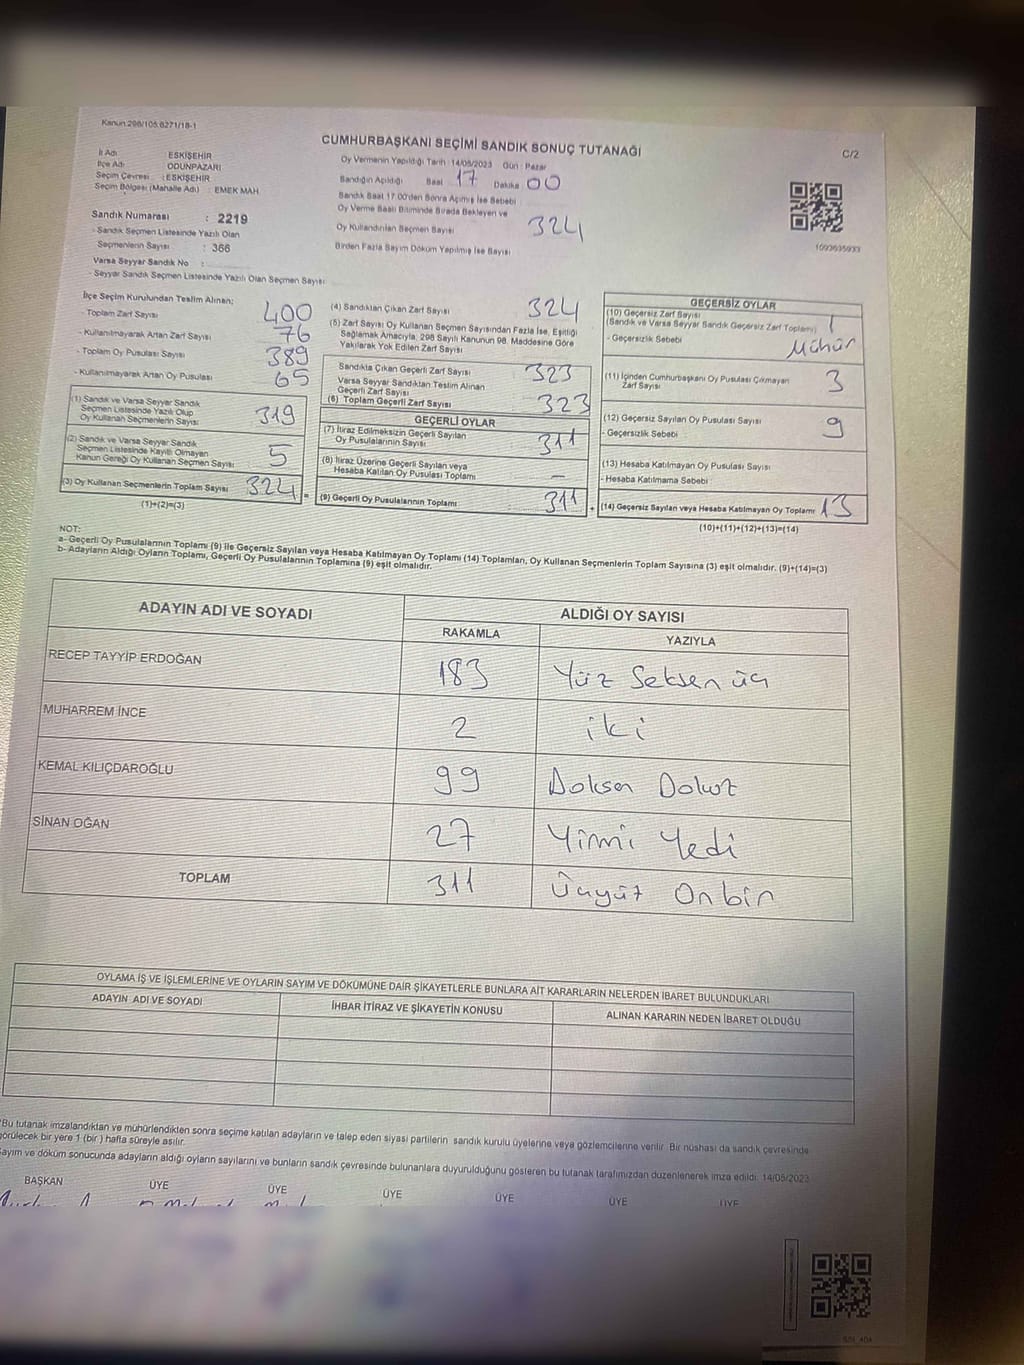 Kanun:298/105,6271/18-1
CUMHURBAŞKANI SEÇİMİ SANDIK SONUÇ TUTANAĞI
C/2
İl Adı : ESKİŞEHİR
İlçe Adı : ODUNPAZARI
Seçim Çevresi : ESKİŞEHİR
Seçim Bölgesi (Mahalle Adı) : EMEK MAH.
Sandık Numarası : 2219
- Sandık Seçmen Listesinde Yazılı Olan
Seçmenlerin Sayısı : 366
Varsa Seyyar Sandık No :
- Seyyar Sandık Seçmen Listesinde Yazılı Olan Seçmen Sayısı:
Oy Vermenin Yapıldığı Tarih : 14/05/2023 Gün : Pazar
Sandığın Açıldığı Saat 17 Dakika 00
Sandık Saat 17.00'den Sonra Açılmış İse Sebebi
Oy Verme Saati Bitiminde Sırada Bekleyen ve
Oy Kullandırılan Seçmen Sayısı 324
Birden Fazla Sayım Döküm Yapılmış İse Sayısı
İlçe Seçim Kurulundan Teslim Alınan;
- Toplam Zarf Sayısı 400
- Kullanılmayarak Artan Zarf Sayısı 76
- Toplam Oy Pusulası Sayısı 389
- Kullanılmayarak Artan Oy Pusulası 65
(1) Sandık ve Varsa Seyyar Sandık
Seçmen Listesinde Yazılı Olup
Oy Kullanan Seçmenlerin Sayısı 319
(2) Sandık ve Varsa Seyyar Sandık
Seçmen Listesinde Kayıtlı Olmayan
Kanun Gereği Oy Kullanan Seçmen Sayısı 5
(3) Oy Kullanan Seçmenlerin Toplam Sayısı 324 =
(1)+(2)=(3)
(4) Sandıktan Çıkan Zarf Sayısı 324
(5) Zarf Sayısı Oy Kullanan Seçmen Sayısından Fazla İse, Eşitliği
Sağlamak Amacıyla, 298 Sayılı Kanunun 98. Maddesine Göre
Yakılarak Yok Edilen Zarf Sayısı
Sandıkta Çıkan Geçerli Zarf Sayısı 323
Varsa Seyyar Sandıktan Teslim Alınan
Geçerli Zarf Sayısı
(6) Toplam Geçerli Zarf Sayısı 323
GEÇERLİ OYLAR
(7) İtiraz Edilmeksizin Geçerli Sayılan
Oy Pusulalarının Sayısı 311
(8) İtiraz Üzerine Geçerli Sayılan veya
Hesaba Katılan Oy Pusulası Toplamı —
(9) Geçerli Oy Pusulalarının Toplamı 311 +
GEÇERSİZ OYLAR
(10) Geçersiz Zarf Sayısı
(Sandık ve Varsa Seyyar Sandık Geçersiz Zarf Toplamı) 1
- Geçersizlik Sebebi Mühür
(11) İçinden Cumhurbaşkanı Oy Pusulası Çıkmayan
Zarf Sayısı 3
(12) Geçersiz Sayılan Oy Pusulası Sayısı 9
- Geçersizlik Sebebi
(13) Hesaba Katılmayan Oy Pusulası Sayısı
- Hesaba Katılmama Sebebi
(14) Geçersiz Sayılan veya Hesaba Katılmayan Oy Toplamı 13
(10)+(11)+(12)+(13)=(14)
NOT:
a- Geçerli Oy Pusulalarının Toplamı (9) ile Geçersiz Sayılan veya Hesaba Katılmayan Oy Toplamı (14) Toplamları, Oy Kullanan Seçmenlerin Toplam Sayısına (3) eşit olmalıdır. (9)+(14)=(3)
b- Adayların Aldığı Oyların Toplamı, Geçerli Oy Pusulalarının Toplamına (9) eşit olmalıdır.
ADAYIN ADI VE SOYADI ALDIĞI OY SAYISI
RAKAMLA YAZIYLA
RECEP TAYYİP ERDOĞAN 183 Yüz Seksen üç
MUHARREM İNCE 2 iki
KEMAL KILIÇDAROĞLU 99 Doksan Dokuz
SİNAN OĞAN 27 Yirmi Yedi
TOPLAM 311 Üçyüz Onbir
OYLAMA İŞ VE İŞLEMLERİNE VE OYLARIN SAYIM VE DÖKÜMÜNE DAİR ŞİKAYETLERLE BUNLARA AİT KARARLARIN NELERDEN İBARET BULUNDUKLARI
ADAYIN ADI VE SOYADI İHBAR İTİRAZ VE ŞİKAYETİN KONUSU ALINAN KARARIN NEDEN İBARET OLDUĞU
*Bu tutanak imzalandıktan ve mühürlendikten sonra seçime katılan adayların ve talep eden siyasi partilerin sandık kurulu üyelerine veya gözlemcilerine verilir. Bir nüshası da sandık çevresinde
görülecek bir yere 1 (bir ) hafta süreyle asılır.
Sayım ve döküm sonucunda adayların aldığı oyların sayılarını ve bunların sandık çevresinde bulunanlara duyurulduğunu gösteren bu tutanak tarafımızdan düzenlenerek imza edildi. 14/05/2023
BAŞKAN ÜYE ÜYE ÜYE ÜYE ÜYE ÜYE